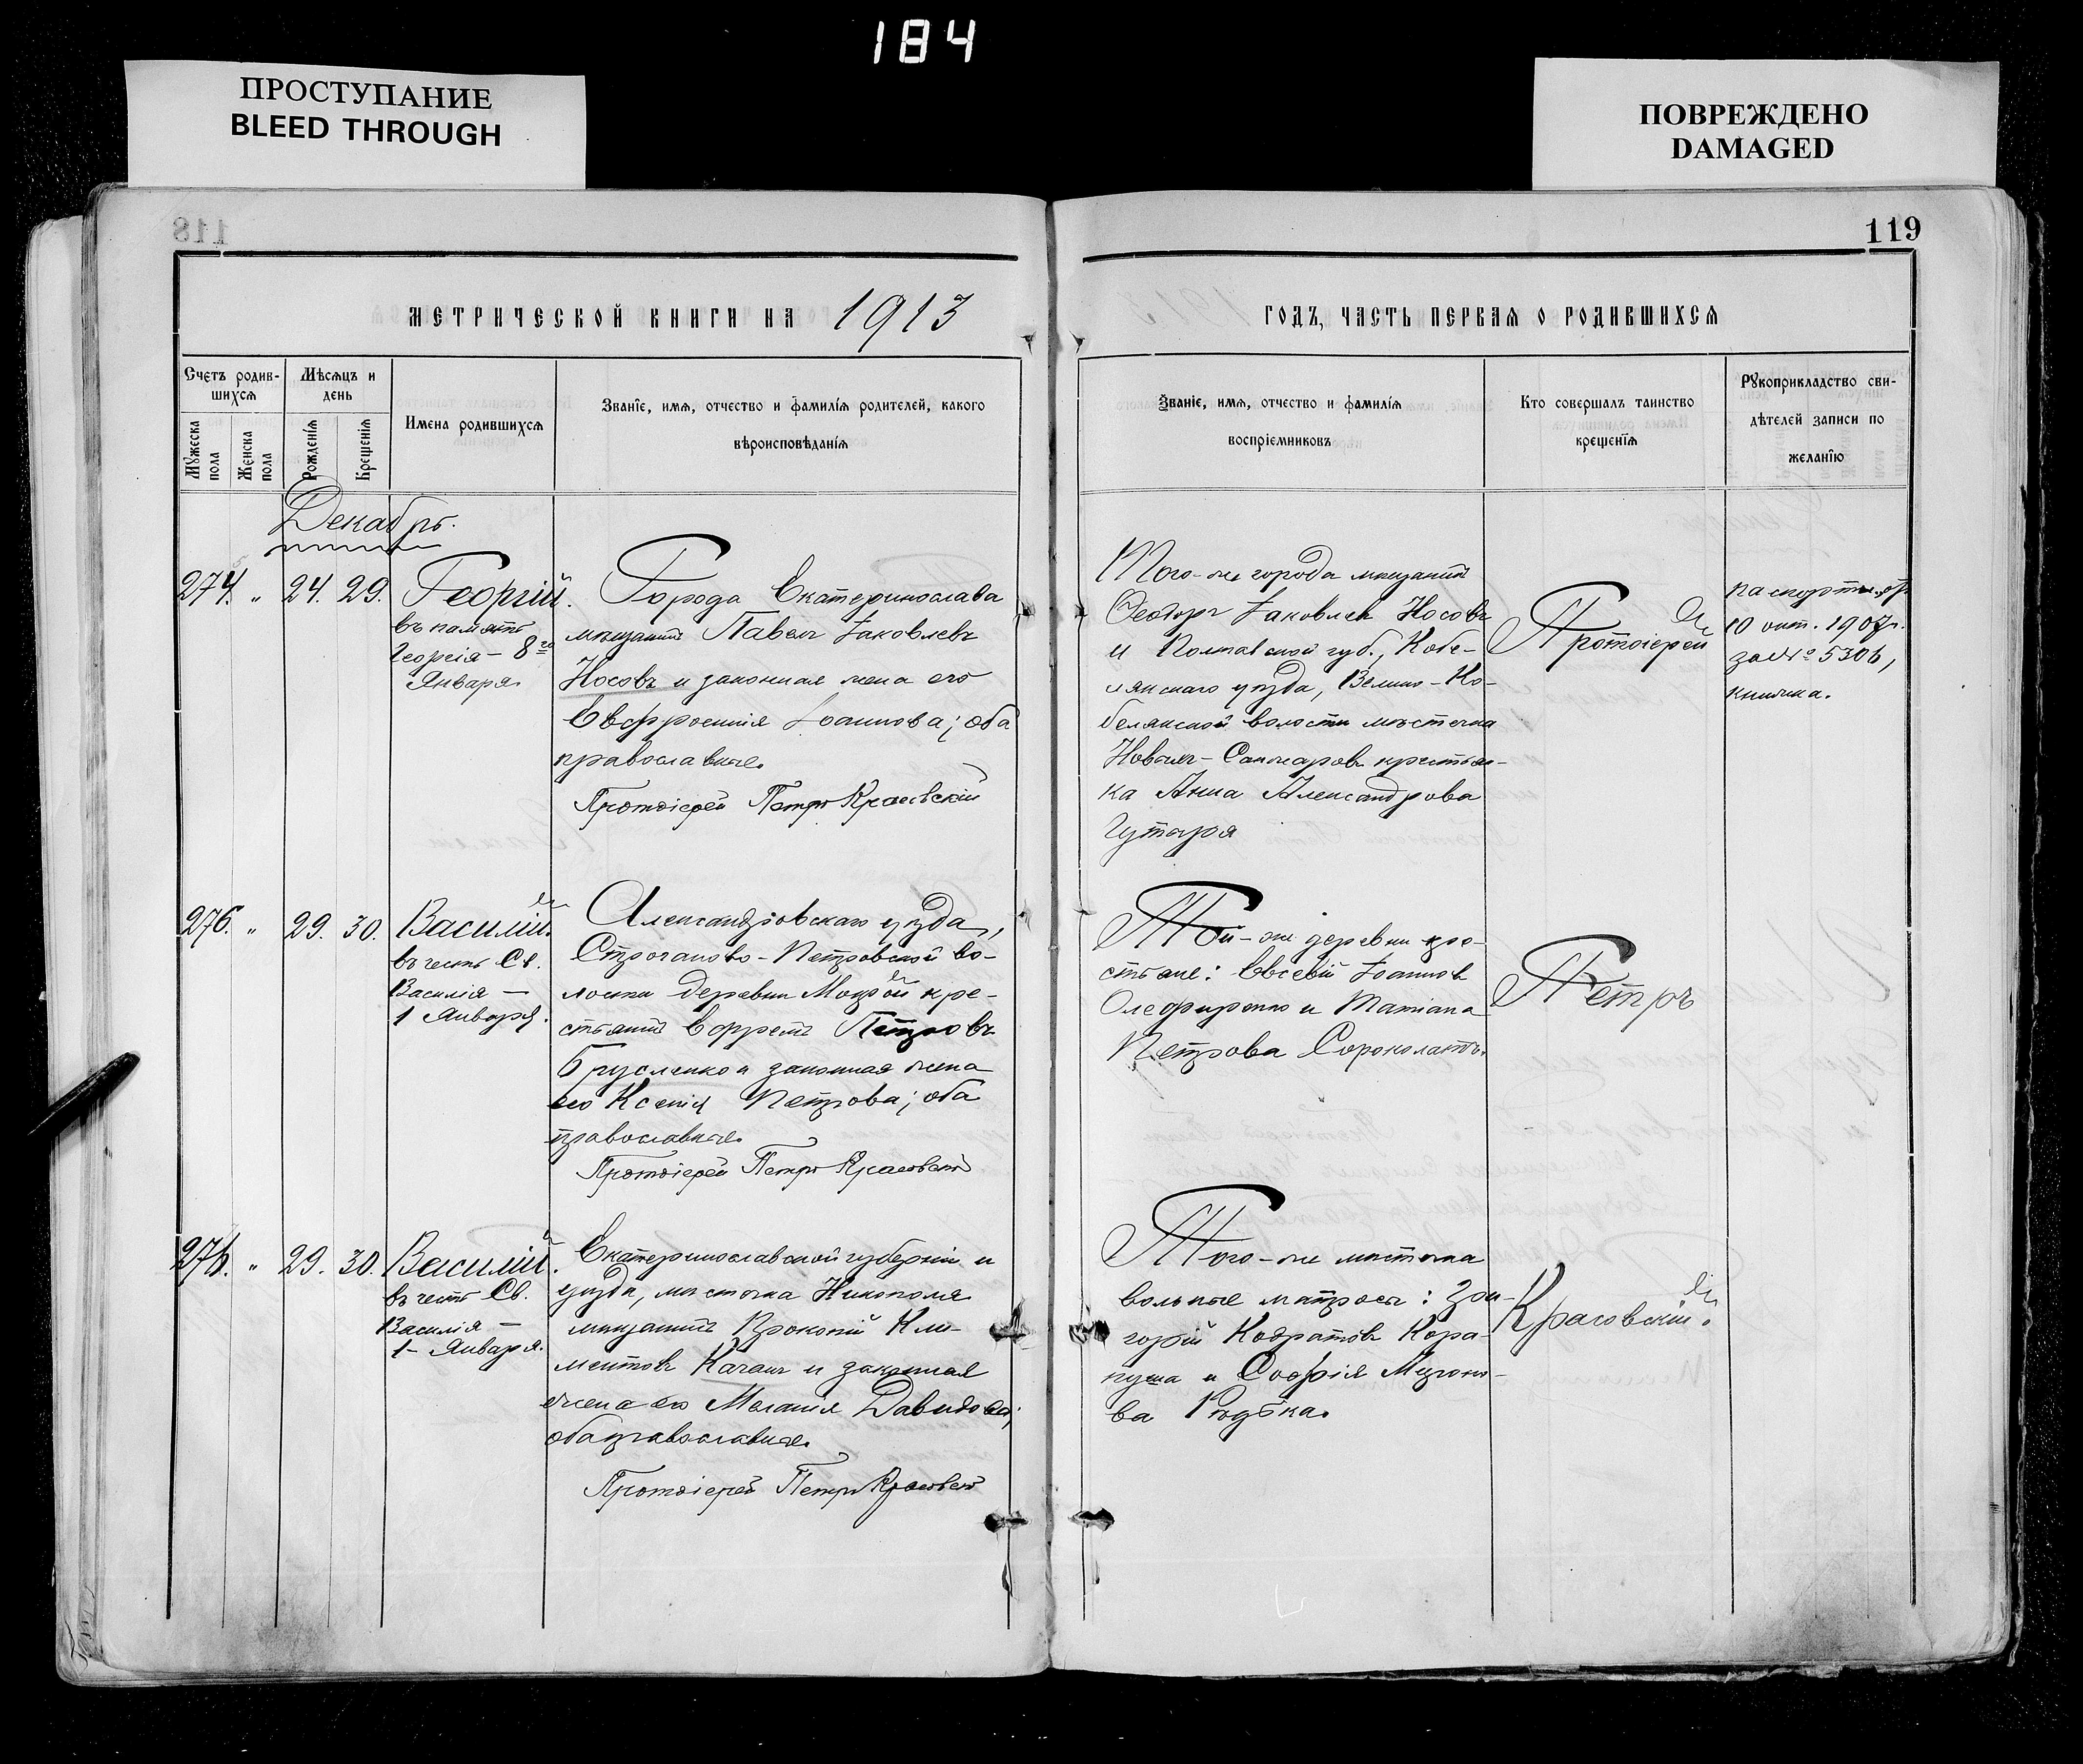 184
ПРОСТУПАНИЕ
BLEED THROUGH
ПОВРЕЖДЕНО
DAMAGED
118
119
МЕТРИЧЕСКОЙ КНИГИ НА 1913
ГОДЪ, ЧАСТЬ ПЕРВАЯ О РОДИВШИХСЯ
Счетъ родив-
шихся
Мужеска пола
Женска пола
Мѣсяцъ и
день
Рожденїя
Крещенїя
Имена родившихся
Званїе, имя, отчество и фамилїя родителей, какого
вѣроисповѣданїя
Званїе, имя, отчество и фамилїя
воспрїемниковъ
Кто совершалъ таинство
крещенїя
Рукоприкладство сви-
дѣтелей записи по
желанїю
Декабрь.
274. " 24. 29.
Георгій.
въ память
Георгія – 8го
Января.
Города Екатеринослава
мѣщанинъ Павелъ Іаковлевъ
Носовъ и законная жена его
Евфросинія Іоаннова; оба
православные.
Протоіерей Петръ Красовскій
Того-же города мѣщанинъ
Ѳеодоръ Іаковлев Носовъ
и Полтавской губ., Кобе-
лякскаго уѣзда, Велико-Ко-
белякской волости мѣстечка
Новыхъ-Санжаровъ крестьян-
ка Анна Александрова
Протоіерей
паспортн.
10 окт. 1907г.
за №
книжка.
" 29. 30.
Василій.
въ честь Св.
Василія –
1 Января.
Александровскаго уѣзда,
Строганово-Петровской во-
лости деревни Мокрой кре-
стьянинъ Ефремъ Петровъ
Брусленко и законная жена
его Ксенія Петрова; оба
православные.
Протоіерей Петръ Красовскій
Той-же деревни кре-
стьяне: Евсевій Іоаннов
Олефиренко и Татіана
Петрова
Петръ
276. " 29. 30.
Василій.
въ честь Св.
Василія –
1 – Января.
Екатеринославской губерніи и
уѣзда, мѣстечка Никополя
мѣщанинъ Прокопій Кли-
ментовъ Качанъ и законная
жена его Меланія Давидова;
оба православные.
Протоіерей Петръ Красовскій
Того-же мѣстечка
вольные матросы:
и Софія
ва Рѣдька.
Красовскій.